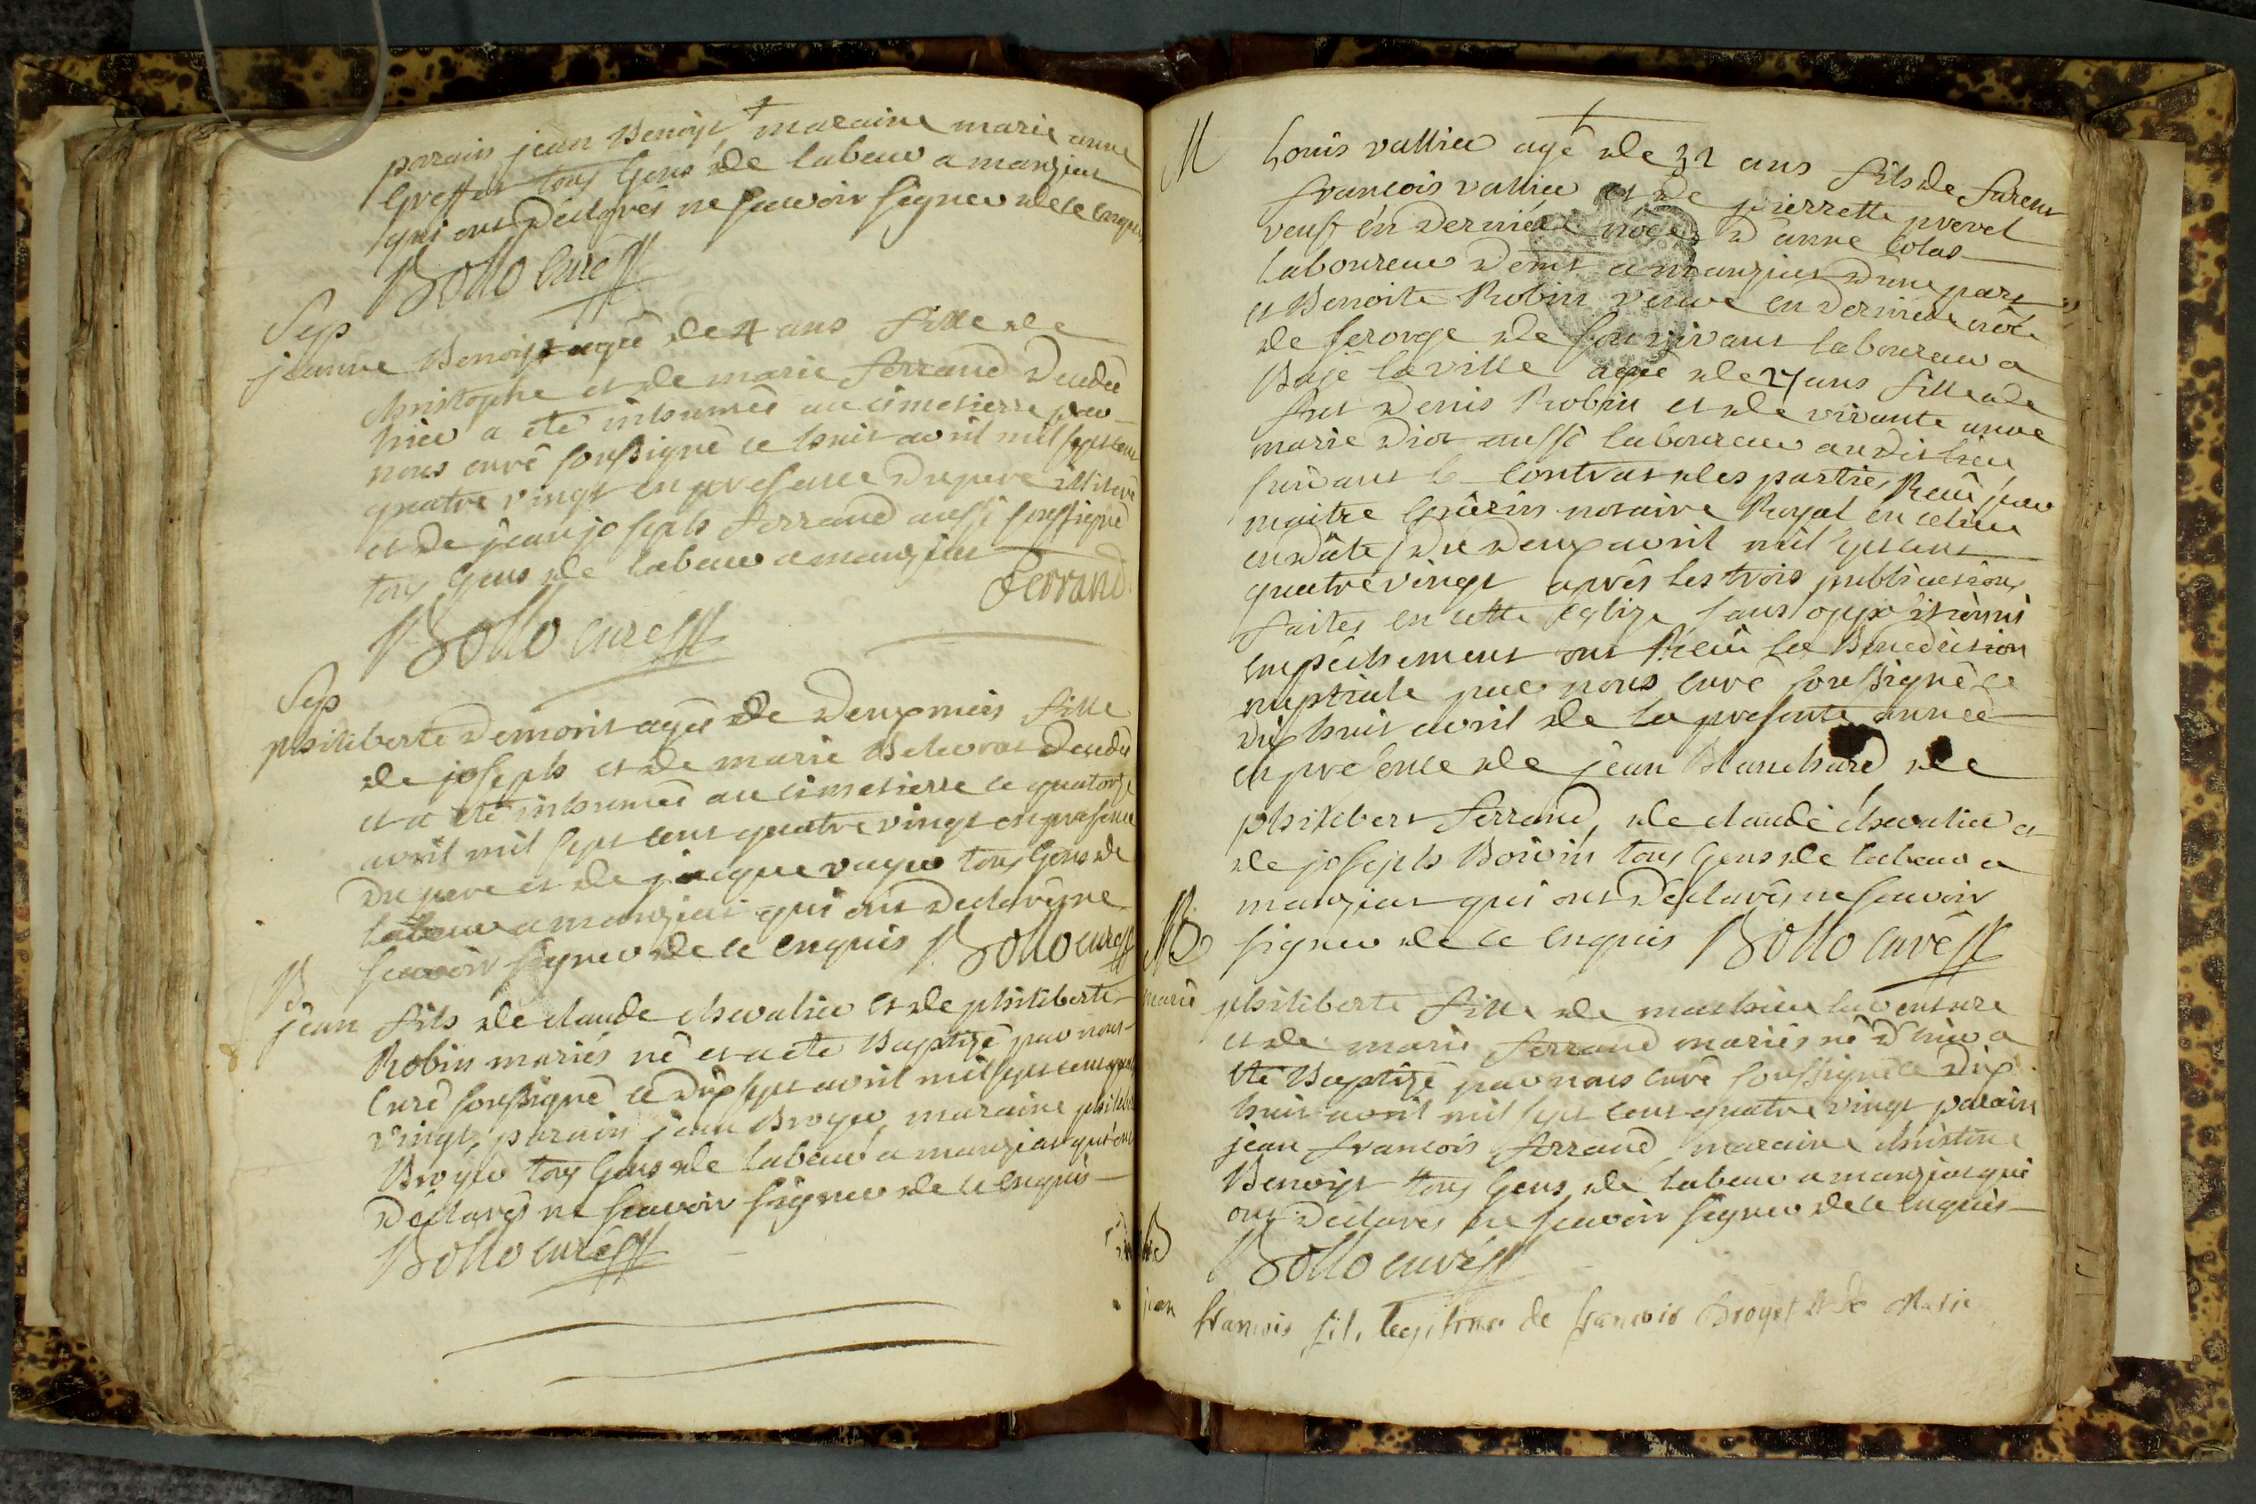 parain jean Benoist maraine marie anne
Greffet tous Gens de labeur a manziat
qui ont Déclarés ne scavoir signer de ce enquis
Bollo curé
Sep
jeanne Benoist agée de 4 ans fille de
christophe et de marie ferrand Decedée
hier a été inhumée au cimetierre par
nous curé soussigné ce huit avril mil sept cent
quatre vingt en presence du pere illiteré
et de jean joseph ferrand aussi soussigné
tous Gens de labeur a manziat
ferrand
Bollo curé
Sep
philiberte Demont agée de Deux mois fille
de joseph et de marie Decedée
et a été inhumée au cimetierre ce quatorze
avril mil sept cent quatre vingt en presence
Du pere et de jacque tous Gens de
labeur a manziat qui ont Declarés ne
scavoir signer de ce enquis Bollo curé
B
jean fils de claude chevalier et de philiberte
Robin mariés né et a eté Baptizé par nous
Curé soussigné ce Dix sept avril mil sept cent quatre
vingt, parain jean Broyer maraine philiberte
Broyer tous Gens de labeur a manziat qui ont
Déclarés ne scavoir signer de ce enquis
Bollo curé
M
Louis vallier agé de 32 ans fils de
francois vallier et de pierrette prevel
veuf én derniére nôces D'anne Colas
laboureur Demt a manziat D'une part
et Benoite Robin veuve en derniére nôce
de de son vivant laboureur a
Bajé la ville agée de 27 ans fille de
fut Denis Robin et de vivante anne
marie Diot aussi laboureur audit lieu
suivant le Contrat des parties, Reçu par
maitre Guérin notaire Royal en ce lieu
en Date du Deux avril mil sept cent
quatre vingt aprés les trois publications
faites en cette eglize sans opposition ni
empéchement ont Reçû la Benediction
nuptiale par nous curé soussigné ce
dix huit avril de la presente année
en presence de jean Blanchard de
philibert ferrand, de claude chevalier et
de joseph Boivin tous Gens de labeur a
manziat qui ont Déclarés ne scavoir
signer de ce enquis Bollo curé
B
marie philiberte fille de mathieu laventure
et de marie ferrand mariés né d'hier a
été Baptizé par nous curé soussigné ce Dix
huit avril mil sept cent quatre vingt parain
jean francois ferrand, maraine christine
Benoist tous Gens de labeur a manziat qui
ont Declarés ne scavoir signer de ce enquis
Bollo curé
jean francois fils legitime de francois Broyer et de Marie